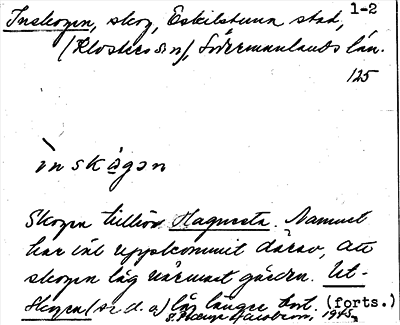 1-2
Inskogen, skog, Eskilstuna stad,
(Klosters sn), Södermanlands län.
125
ìn skɷgən
Skogen tillhör Hagnesta. Namnet
har väl uppkommit därav, att
skogen låg närmast gården. Ut-
skogen (se d. o.) låg längre bort. (forts.)
1945